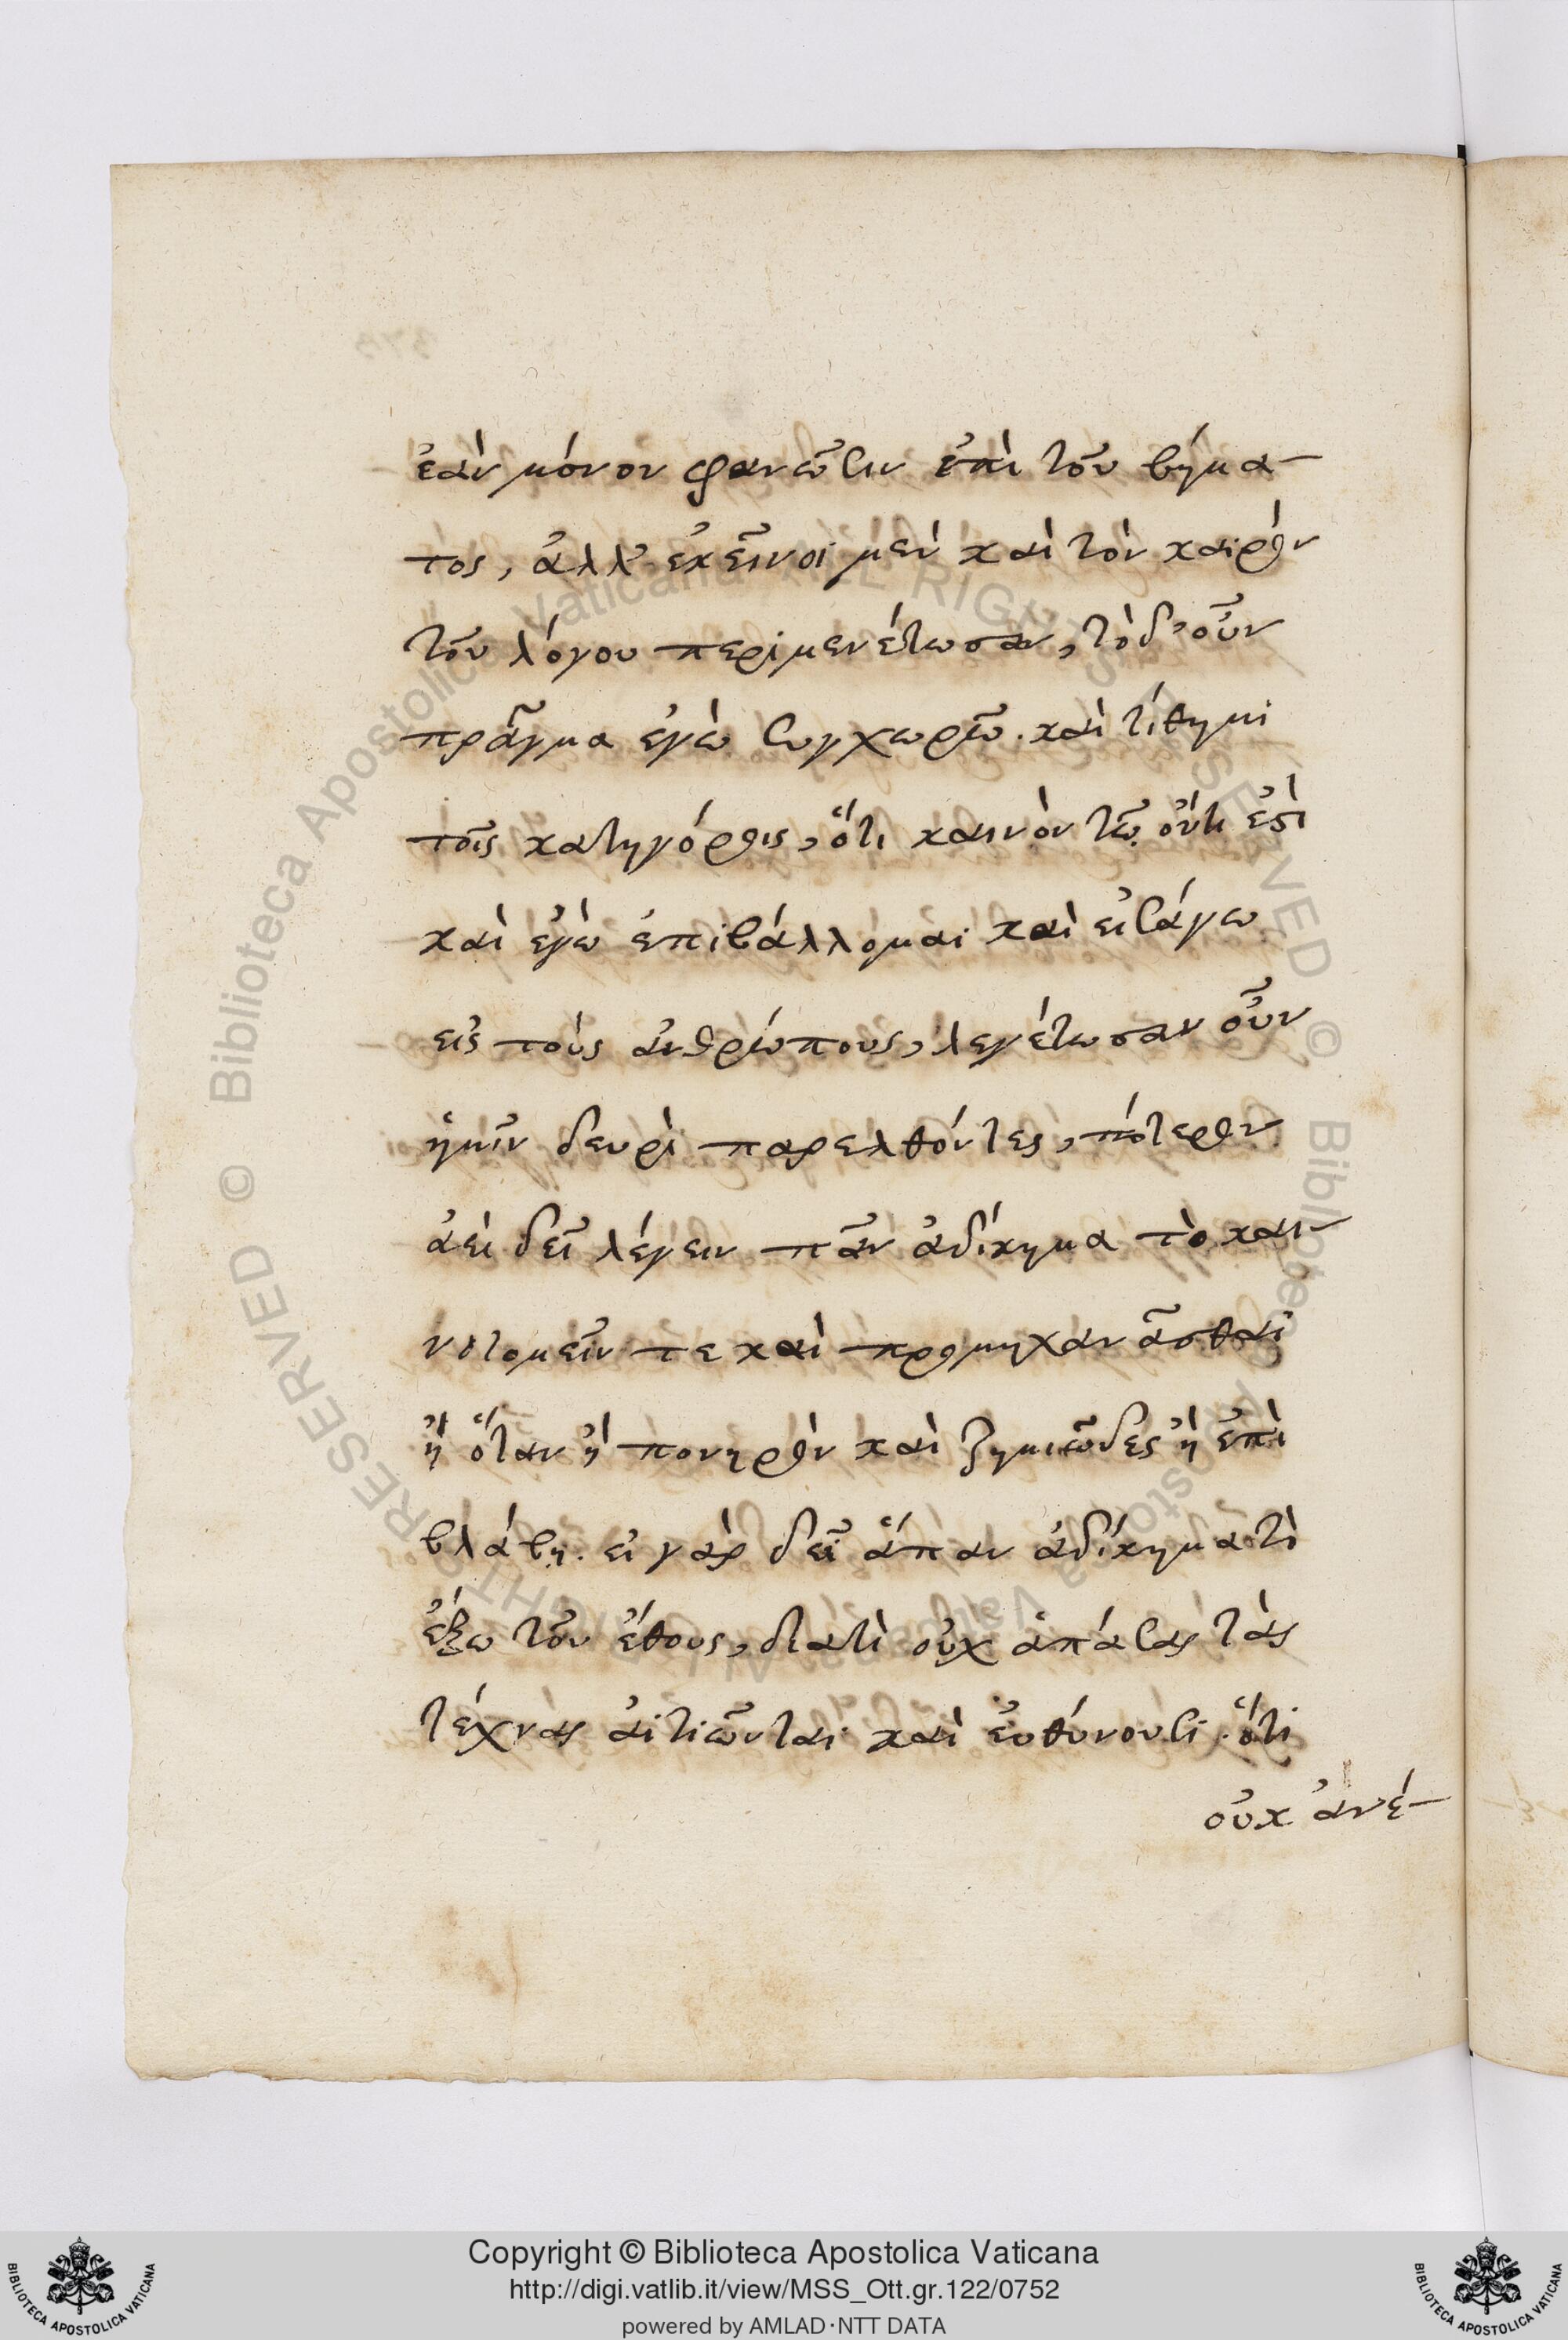 ἐὰν μόνον φανῶσιν ἐπὶ τοῦ βήμα-
τος, ἀλλ' ἐκεῖνοι μὲν καὶ τὸν καιρὸν
τοῦ λόγου περιμενέτωσαν, τὸ δ' οὖν
πρᾶγμα ἐγὼ συγχωρῶ. καὶ τίθημι
τοῖς κατηγόροις, ὅτι καινὸν τῷ ὄντι ἐστὶ
καὶ ἐγὼ ἐπιβάλλομαι καὶ εἰσάγω
εἰς τοὺς ἀνθρώπους, λεγέτωσαν οὖν
ἡμῖν δευρὶ παρελθόντες, πότερον
ἀεὶ δεῖ λέγειν πᾶν ἀδίκημα τὸ και-
νοτομεῖν τε καὶ προμηχανᾶσθαι
ἢ ὅταν ᾖ πονηρὸν καὶ ζημιῶδες ἢ ἐπὶ
βλάβῃ. εἰ γὰρ δεῖ ἅπαν ἀδίκημα τὶ
ἔξω τοῦ ἔθους, διατὶ οὐχ ἁπάσας τὰς
τέχνας αἰτιῶνται καὶ εὐθύνουσι. ὅτι
οὐκ ἀνέ-
Copyright © Biblioteca Apostolica Vaticana
http://digi.vatlib.it/view/MSS_Ott.gr.122/0752
powered by AMLAD·NTT DATA